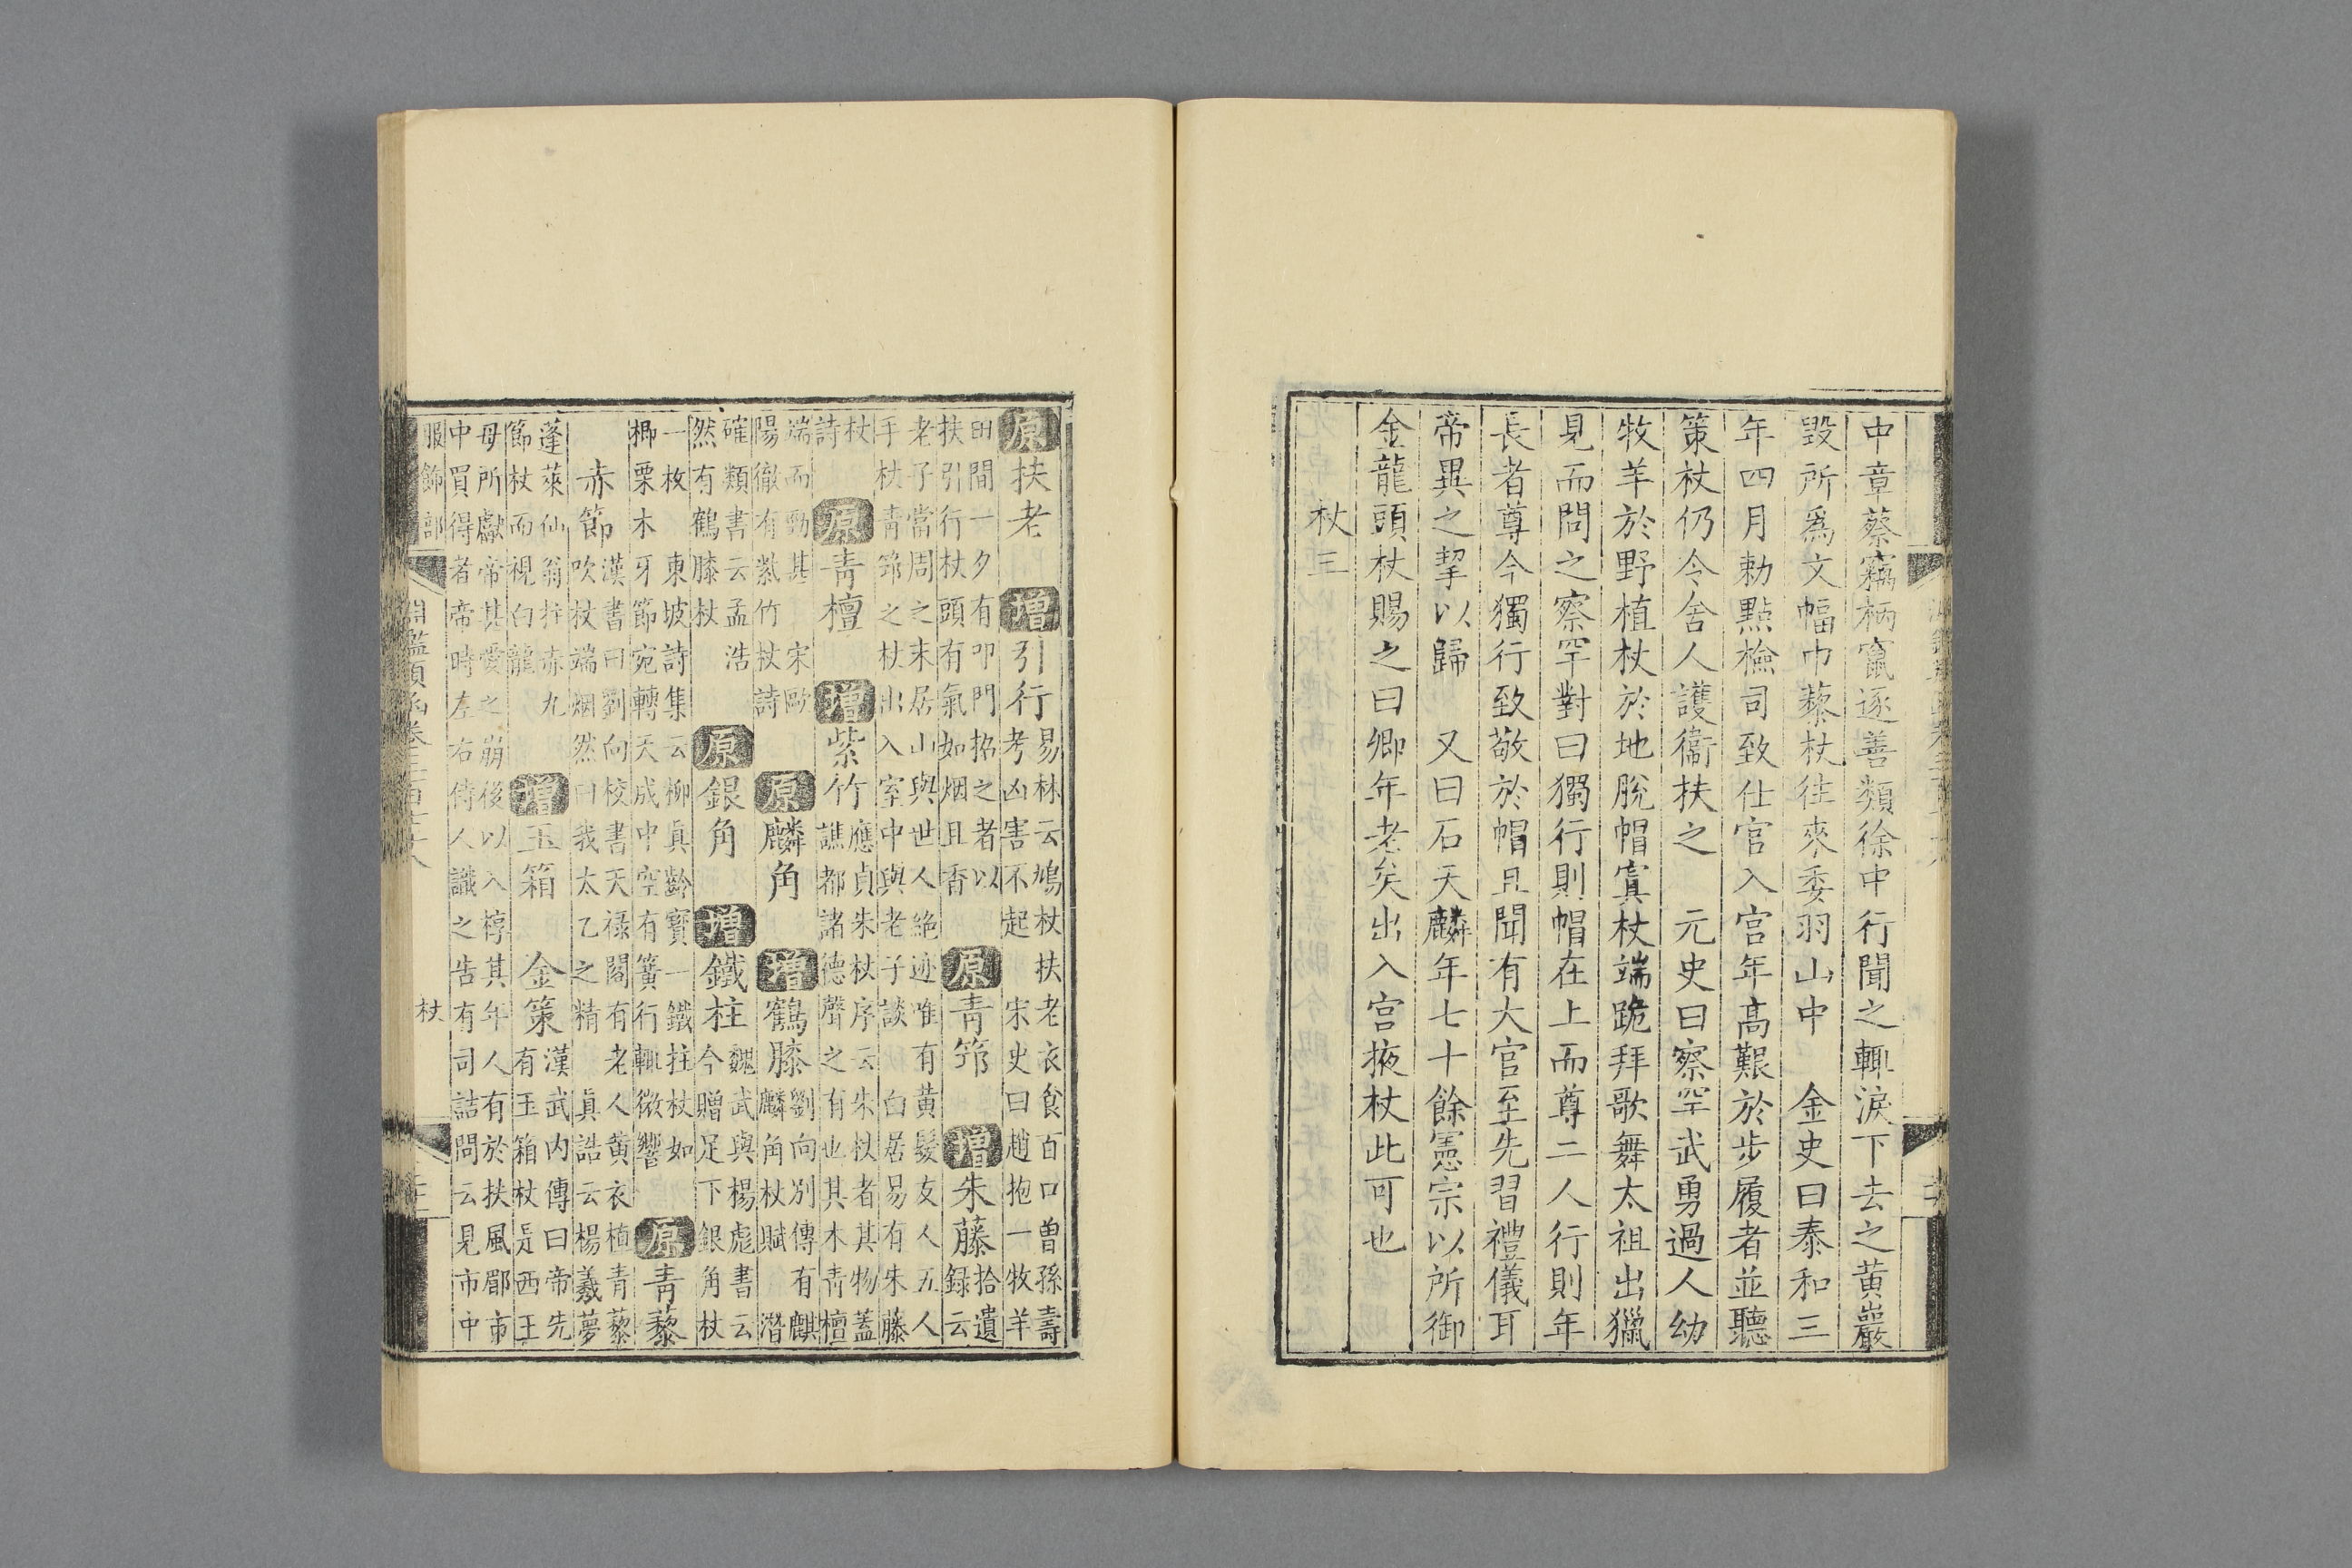 中章蔡竊柄竄逐善類徐中行聞之輒淚下去之黄巖
毀所爲文幅巾藜杖往來委羽山中　金史曰泰和三
年四月勅點檢司致仕官入宫年高艱於步履者並聽
策杖仍令舍人護衛扶之　元史曰察罕武勇過人幼
牧羊於野植杖於地脫帽寘杖端跪拜歌舞太祖出獵
見而問之察罕對曰獨行則帽在上而尊二人行則年
長者尊今獨行致敬於帽且聞有大官至先習禮儀耳
帝異之挈以歸　又曰石天麟年七十餘憲宗以所御
金龍頭杖賜之曰卿年老矣出入宫掖杖此可也
杖三
原扶老　增引行
易林云鳩杖扶老衣食百口曽孫壽
考凶害不起　宋史曰趙抱一牧羊
田間一夕有叩門招之者以
扶引行杖頭有氣如烟且香
原青筇　增朱藤
拾遺
録云
老子當周之末居山與世人絶迹唯有黄髮友人五人
手杖青筇之杖出入室中與老子談　白居易有朱藤
杖
詩
原青檀　增紫竹
應貞朱杖序云朱杖者其物蓋
譙都諸德聲之有也其木青檀
端而勁其　宋歐
陽徹有紫竹杖詩
原麟角　增鶴膝
劉向别傳有麒
麟角杖賦　潛
確類書云孟浩
然有鶴膝杖
原銀角　增鐵柱
魏武與楊彪書云
今贈足下銀角杖
一枚　東坡詩集云柳真齡寶一鐵拄杖如
楖栗木牙節宛轉天成中空有簧行輒微響
原青藜
赤節
漢書曰劉向校書天禄閣有老人黄衣植青藜
吹杖端烟然曰我太乙之精　真誥云楊羲夢
蓬萊仙翁拄赤九
節杖而視白龍
增玉箱　金策
漢武内傳曰帝先
有玉箱杖是西王
母所獻帝甚愛之崩後以入椁其年人有於扶風郿市
中買得者帝時左右侍人識之告有司詰問云見市中
服飾部　淵鑑類函卷三百七十八　杖